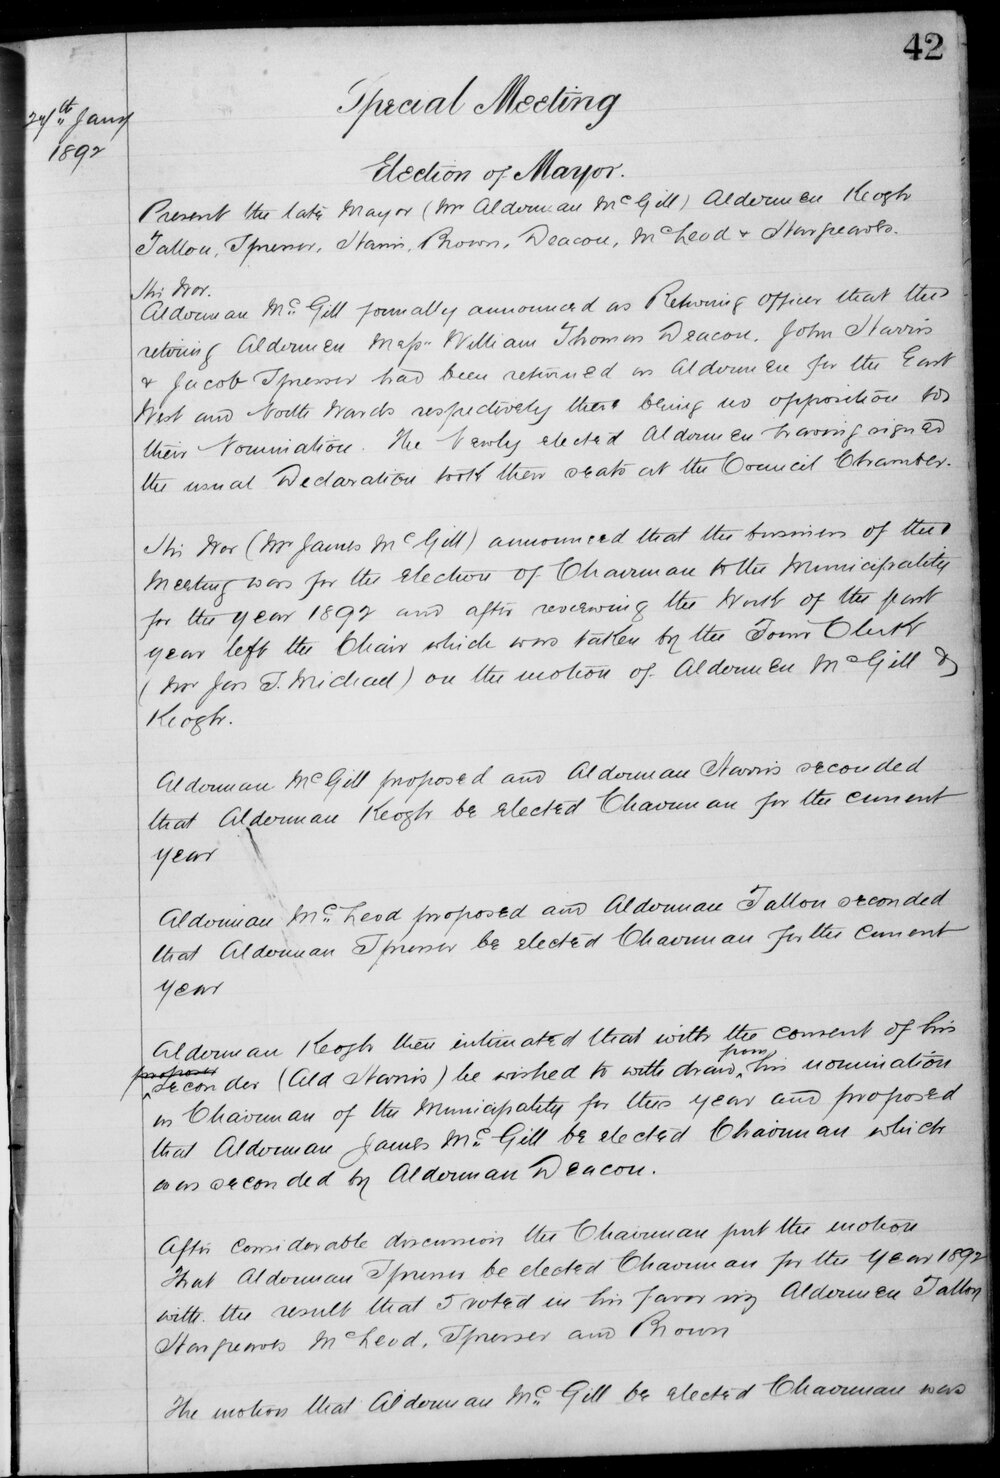 42
24th Jany
1892
Special Meeting
Election of Mayor.
Present the late Mayor (Mr Alderman McGill) Aldermen Keogh
Tallon, Spresser, Harris, Brown, Deacon, McLeod & Hargreaves.
His Wor.
Alderman McGill formally announced as Returning Officer that the
retiring Aldermen Messrs William Thomas Deacon, John Harris
& Jacob Spresser had been returned as Aldermen for the East
West and North Wards respectively there being no opposition to
their Nomination. The Newly elected Aldermen having signed
the usual Declaration took their seats at the Council Chamber.
His Wor (Mr James McGill) announced that the business of the
Meeting was for the election of Chairman to the Municipality
for the year 1892 and after reviewing the Work of the past
year left the Chair which was taken by the Town Clerk
(Mr Jas T. Michael) on the motion of Aldermen McGill &
Keogh.
Alderman McGill proposed and Alderman Harris seconded
that Alderman Keogh be elected Chairman for the current
year
Alderman McLeod proposed and Alderman Tallon seconded
that Alderman Spresser be elected Chairman for the current
year
Alderman Keogh then intimated that with the consent of his
proposer
seconder (Ald Harris) he wished to withdraw from his nomination
as Chairman of the Municipality for this year and proposed
that Alderman James McGill be elected Chairman which
was seconded by Alderman Deacon.
After considerable discussion the Chairman put the motion
That Alderman Spresser be elected Chairman for the Year 1892
with the result that 5 voted in his favor viz Aldermen Tallon
Hargreaves McLeod, Spresser and Brown
The motion that Alderman McGill be elected Chairman was